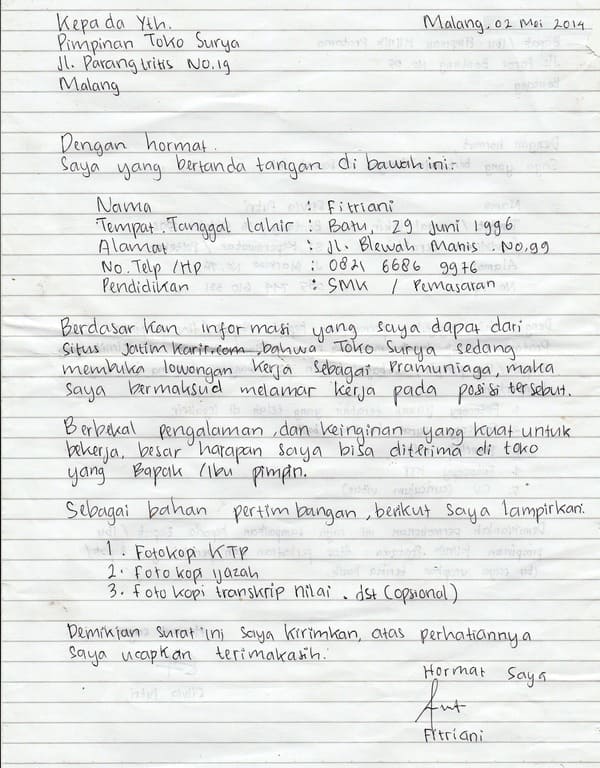 Kepada Yth. Malang, 02 Mei 2014
Pimpinan Toko Surya
Jl. Parangtritis No.19
Malang
Dengan hormat.
Saya yang bertanda tangan di bawah ini:
Nama : Fitriani
Tempat. Tanggal lahir : Batu, 29 Juni 1996
Alamat : Jl. Blewah Manis. No,99
No. Telp /Hp : 0821 6686 9976
Pendidikan : SMK / Pemasaran
Berdasarkan informasi yang saya dapat dari
situs jatimkarir.com, bahwa Toko Surya sedang
membuka lowongan kerja sebagai Pramuniaga, maka
saya bermaksud melamar kerja pada posisi tersebut.
Berbekal pengalaman, dan keinginan yang kuat untuk
bekerja, besar harapan saya bisa diterima di toko
yang Bapak /Ibu pimpin.
Sebagai bahan pertimbangan, berikut saya lampirkan:
1. Fotokopi KTP
2. Foto kopi ijazah
3. Foto kopi transkrip nilai. dst (opsional)
Demikian surat ini saya kirimkan, atas perhatiannya
saya ucapkan terimakasih.
Hormat Saya
Fitriani